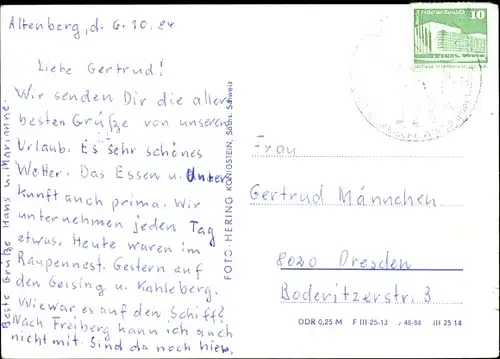 Altenberg, d. 6.10.84
Liebe Gertrud!
Wir senden Dir die aller
besten Grüße von unseren
Urlaub. Es sehr schönes
Wetter. Das Essen u. Unter
kunft auch prima. Wir
unternehmen jeden Tag
etwas. Heute waren im
Raupennest. Gestern auf
den Geising u. Kahleberg.
Wie war es auf den Schiff?
Nach Freiberg kann ich auch
nicht mit. Sind da noch hier.
Beste Grüße Hans u. Marianne.
FOTO-HERING KÖNIGSTEIN, Sächs. Schweiz
10
Frau
Gertrud Männchen
8020 Dresden
Boderitzerstr. 3
DDR 0,25 M F III-25-13 48-84 III 25 14